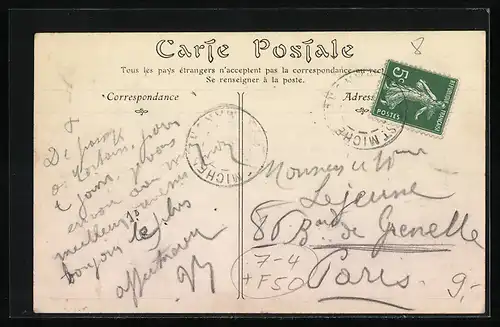 8
Carte Postale
Tous les pays étrangers n'acceptent pas la correspondance au recto
Se renseigner à la poste.
Correspondance
Adresse
5c
POSTES
REPUBLIQUE FRANÇAISE
ST MICHEL
MICHEL
De passage
à Mortain, pour
jours, je vous
envoie
meilleurs
bonjour le plus
affectueux
Monsieur et Mme
Lejeune
86 Bard de Grenelle
Paris.
7-4
+F50
9-